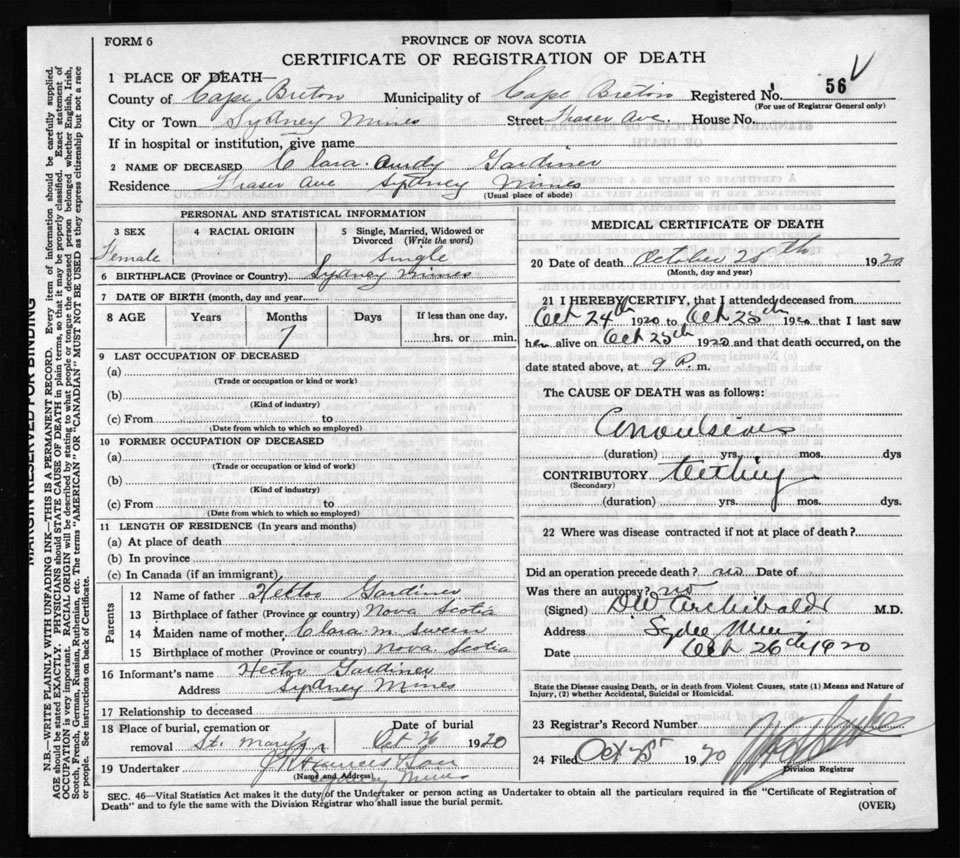 FORM 6
PROVINCE OF NOVA SCOTIA
CERTIFICATE OF REGISTRATION OF DEATH
1 PLACE OF DEATH—
County of Cape Breton Municipality of Cape Breton Registered No. 56
(For use of Registrar General only)
City or Town Sydney Mines Street Fraser Ave. House No.
If in hospital or institution, give name
2 NAME OF DECEASED Clara Gardiner
Residence Fraser Ave Sydney Mines
(Usual place of abode)
PERSONAL AND STATISTICAL INFORMATION
3 SEX 4 RACIAL ORIGIN 5 Single, Married, Widowed or Divorced (Write the word)
Female Single
6 BIRTHPLACE (Province or Country) Sydney Mines
7 DATE OF BIRTH (month, day and year
8 AGE Years Months Days If less than one day,
7 hrs. or min.
9 LAST OCCUPATION OF DECEASED
(a)
(Trade or occupation or kind or work)
(b)
(Kind of industry)
(c) From to
(Date from which to which so employed)
10 FORMER OCCUPATION OF DECEASED
(a)
(Trade or occupation or kind of work)
(b)
(Kind of industry)
(c) From to
(Date from which to which so employed)
11 LENGTH OF RESIDENCE (In years and months)
(a) At place of death
(b) In province
(c) In Canada (if an immigrant)
Parents
12 Name of father Hector Gardiner
13 Birthplace of father (Province or country) Nova Scotia
14 Maiden name of mother Clara M.
15 Birthplace of mother (Province or country) Nova Scotia
16 Informant's name Hector Gardiner
Address Sydney Mines
17 Relationship to deceased
18 Place of burial, cremation or removal St. Mary's Date of burial Oct 26 1920
19 Undertaker
(Name and Address) Sydney Mines
MEDICAL CERTIFICATE OF DEATH
20 Date of death October 25th 1920
(Month, day and year)
21 I HEREBY CERTIFY, that I attended deceased from
Oct 24th 1920 to Oct 25th 1920 that I last saw
her alive on Oct 25th 1920 and that death occurred, on the
date stated above, at 9 P. m.
The CAUSE OF DEATH was as follows:
Convulsions
(duration) yrs. mos. dys
CONTRIBUTORY teething
(Secondary)
(duration) yrs. mos. dys.
22 Where was disease contracted if not at place of death?
Did an operation precede death? no Date of
Was there an autopsy? no
(Signed) DW Archibald M.D.
Address Sydney Mines
Date Oct 26th 1920
State the Disease causing Death, or in death from Violent Causes, state (1) Means and Nature of
Injury, (2) whether Accidental, Suicidal or Homicidal.
23 Registrar's Record Number
24 Filed Oct 1920
Division Registrar
SEC. 46—Vital Statistics Act makes it the duty of the Undertaker or person acting as Undertaker to obtain all the particulars required in the "Certificate of Registration of
Death" and to fyle the same with the Division Registrar who shall issue the burial permit.
(OVER)
MARGIN RESERVED FOR BINDING
N.B.—WRITE PLAINLY WITH UNFADING INK—THIS IS A PERMANENT RECORD. Every item of information should be carefully supplied.
AGE should be stated EXACTLY. PHYSICIANS should STATE CAUSE OF DEATH in plain terms, so that it may be properly classified. Exact statement of
OCCUPATION is very important. RACIAL ORIGIN will be described by stating to what people or tongue the deceased person belonged whether English, Irish,
Scotch, French, German, Russian, Ruthenian, etc. The terms "AMERICAN" OR "CANADIAN" MUST NOT BE USED as they express citizenship but not a race
or people. See instructions on back of Certificate.